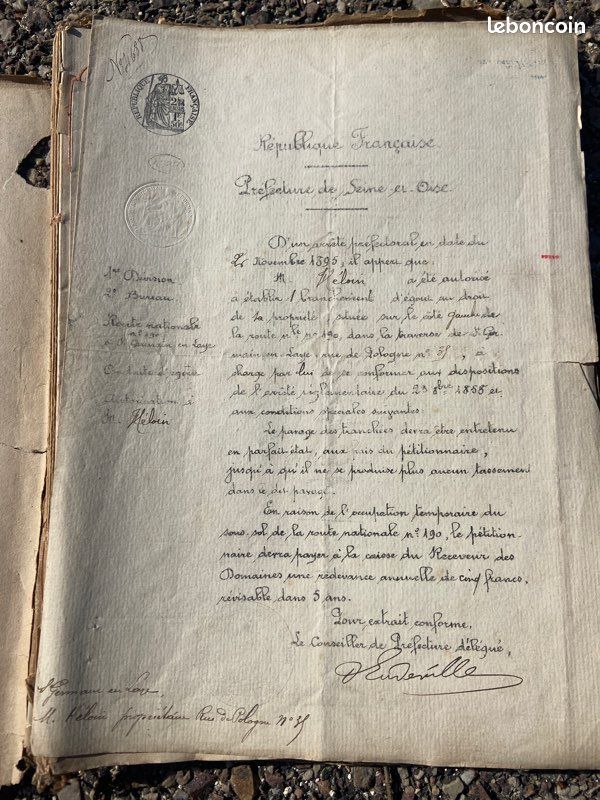 leboncoin
RÉPUBLIQUE FRANÇAISE
République Française.
Préfecture de Seine-et-Oise.
1ère Division
2e Bureau
Route nationale
n° 190
à St Germain en Laye
Conduite d'égout
Autorisation à
M. Héloin
D'un arrêté préfectoral en date du
Novembre 1895, il appert que:
M. Héloin a été autorisé
à établir 1 branchement d'égout au droit
de sa propriété située sur le côté gauche de
la route nle n° 190, dans la traverse de St Ger-
main-en-Laye, rue de Pologne n° 35, à
charge par lui de se conformer aux dispositions
de l'arrêté réglementaire du 23 8bre 1855 et
aux conditions spéciales suivantes:
Le pavage des tranchées devra être entretenu
en parfait état, aux frais du pétitionnaire,
jusqu'à qu'il ne se produise plus aucun tassement
dans le dit pavage.
En raison de l'occupation temporaire du
sous-sol de la route nationale n° 190, le pétition-
naire devra payer à la caisse du Receveur des
Domaines une redevance annuelle de cinq francs,
révisable dans 5 ans.
Pour extrait conforme,
Le Conseiller de Préfecture délégué,
St Germain en Laye
M. Héloin propriétaire Rue de Pologne N° 35